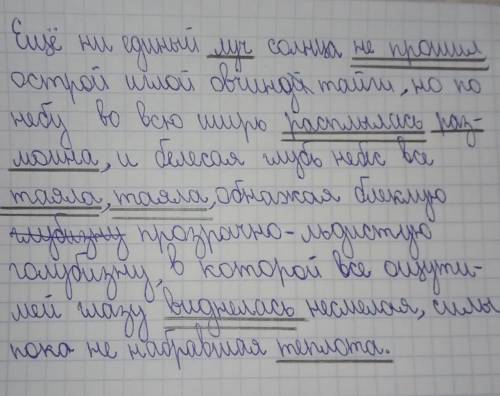 Ещё ни единый луч солнца не прошил
острой иглой овчину тайги, но по
небу во всю ширь расплылась раз-
моина, и белесая глубь небес все
таяла, таяла, обнажая блеклую
глубизну прозрачно-льдистую
голубизну, в которой все ощути-
мей глазу виднелась несмелая, силы
пока не набравшая теплота.